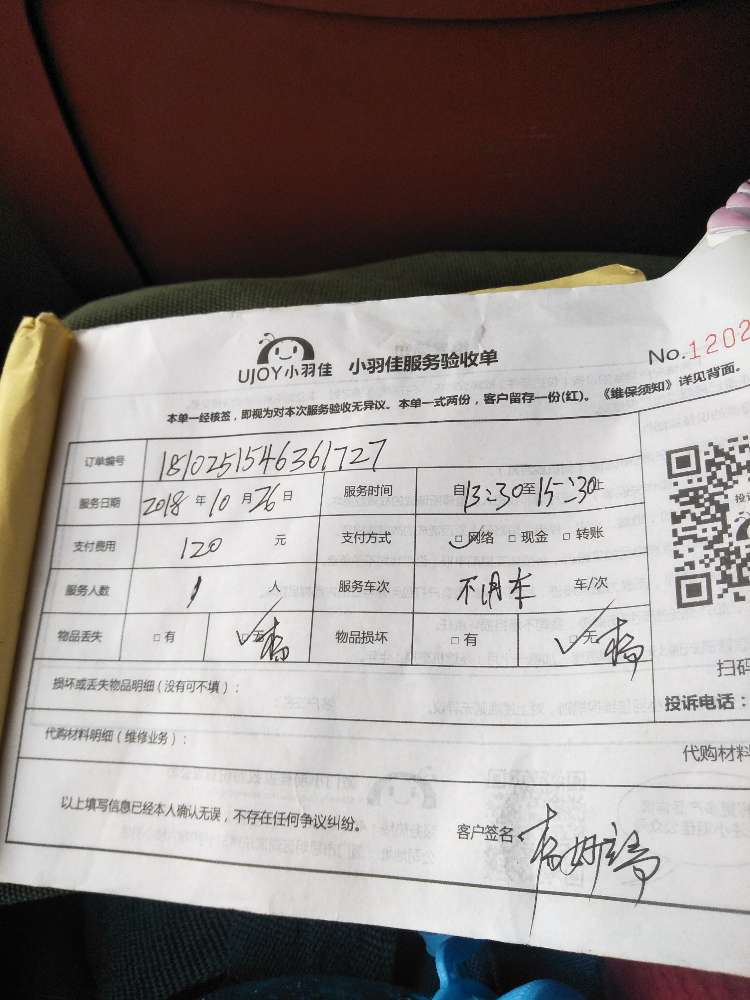 UJOY小羽佳 小羽佳服务验收单 No.1202
本单一经核签，即视为对本次服务验收无异议。本单一式两份，客户留存一份(红)。《维保须知》详见背面。
订单编号 1810251546361727
服务日期 2018 年 10 月 26 日 服务时间 自 13:30 至 15:30 止
支付费用 120 元 支付方式 □ 网络 □ 现金 □ 转账
服务人数 1 人 服务车次 不用车 车/次
物品丢失 □ 有 □ 无 物品损坏 □ 有 □ 无
损坏或丢失物品明细（没有可不填）：
扫码
投诉电话：
代购材料明细（维修业务）：
代购材料
以上填写信息已经本人确认无误，不存在任何争议纠纷。 客户签名：